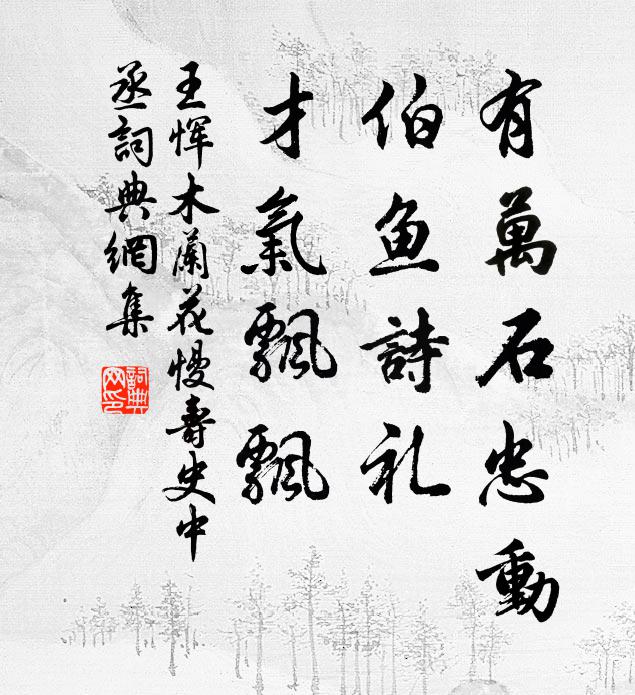 有萬石忠動
伯鱼詩礼
才氣飄飄
王惲木蘭花慢壽史中
丞詞典網集
詞典
网印